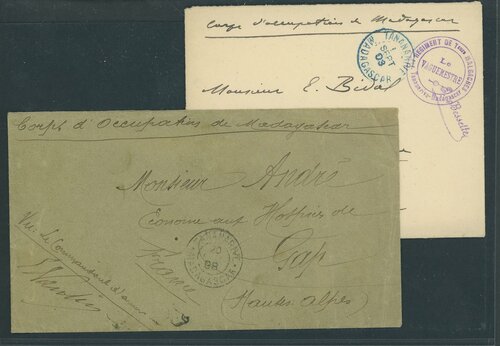 Corps d'occupation de Madagascar
TANANARIVE
SEPT
03
MADAGASCAR
RÉGIMENT DE
Le
VAGUEMESTRE
Monsieur E. Bidal
Corps d'Occupation de Madagascar
Monsieur André
Économe aux Hospices de
Gap
France
(Hautes Alpes)
20
98
MADAGASCAR
Vu: Le Commandant d'armes